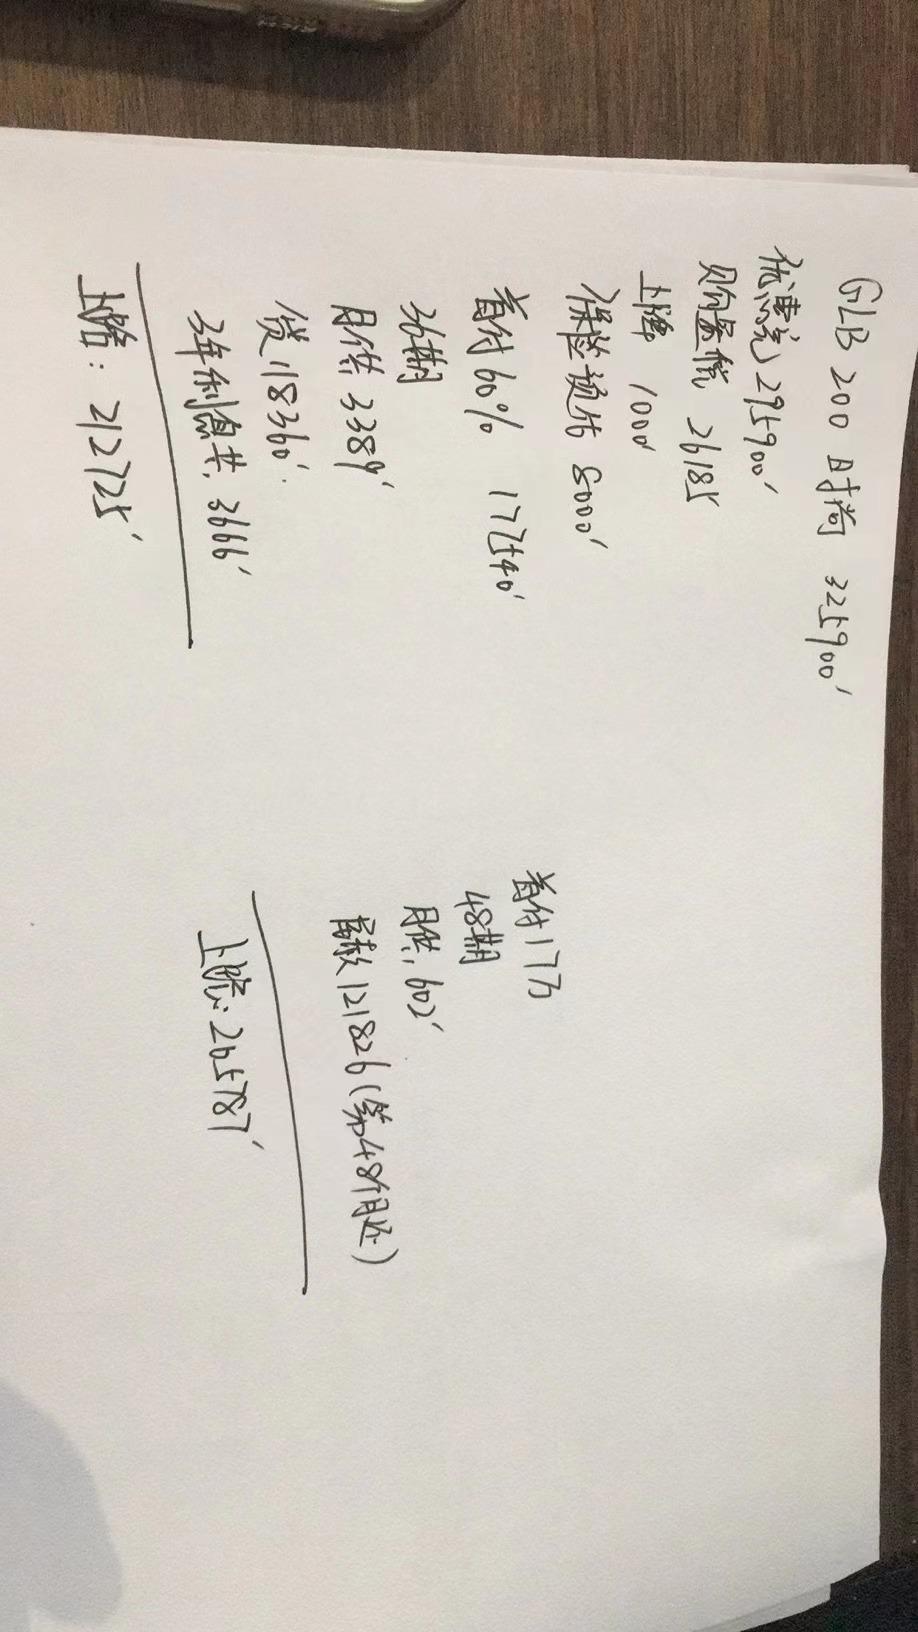 GLB 200 时尚 325900'
优惠完 295900'
购置税 26185
上牌 1000'
保险预估 8000'
首付 60% 177540'
36期
月供 3389'
贷 118360'
3年利息共: 3666'
上路: 212725'
首付 17万
48期
月供: 602'
尾款 121826 (第48个月还)
上路: 205787'